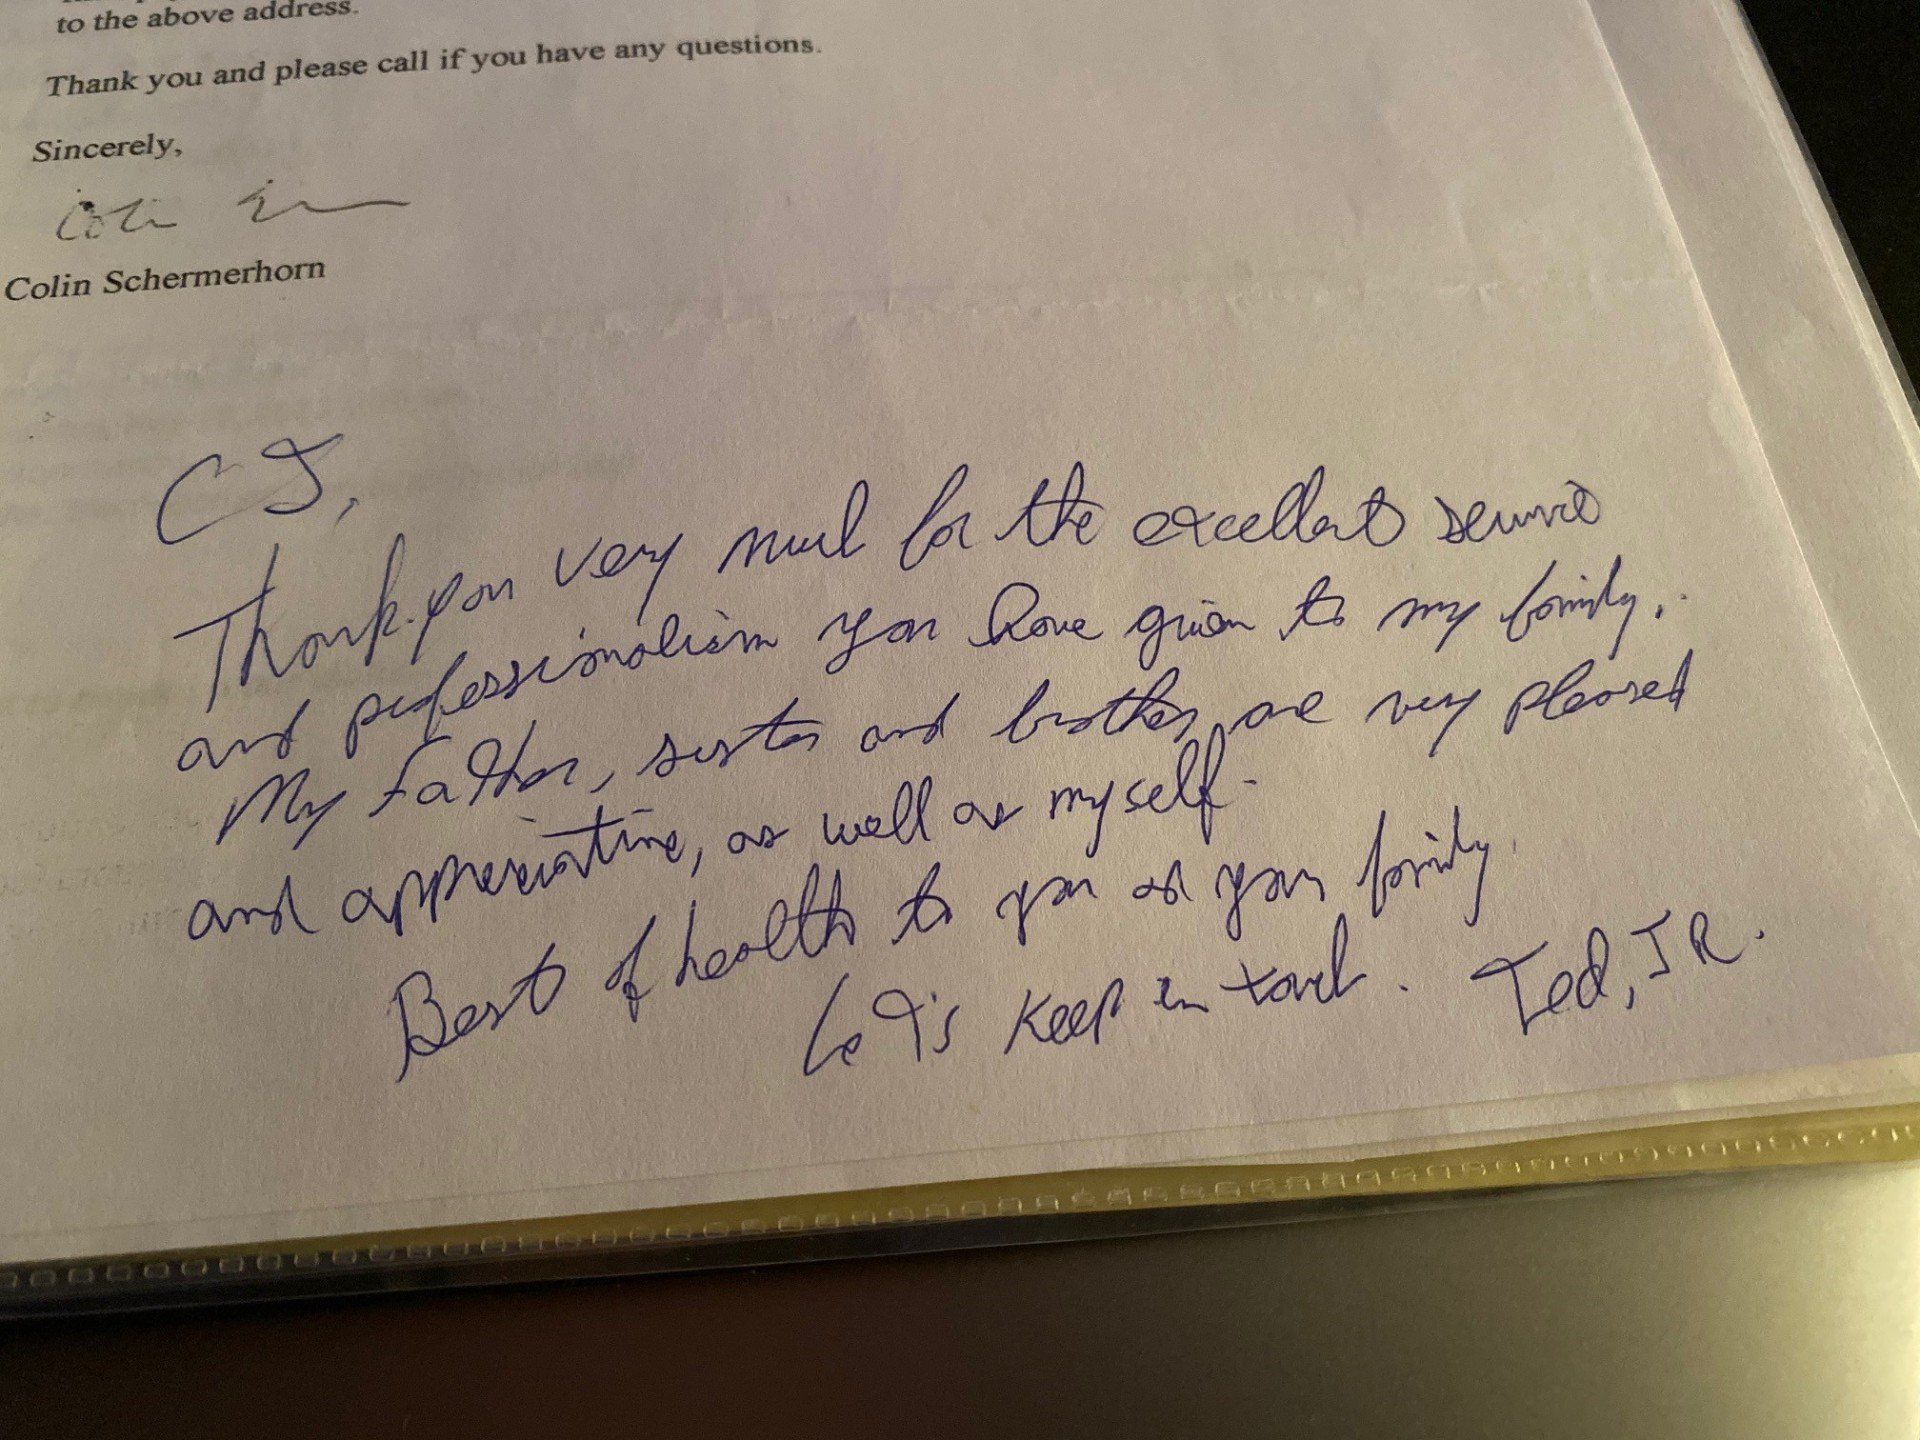 to the above address.
Thank you and please call if you have any questions.
Sincerely,
Colin
Colin Schermerhorn
CJ,
Thank you very much for the excellent service
and professionalism you have given to my family.
My Father, sister and brother, are very pleased
and appreciative, as well as myself.
Best of health to you and your family.
Let's keep in touch. Ted, JR.